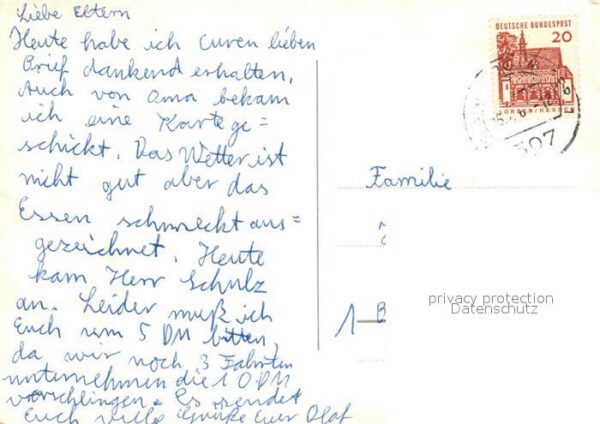 Liebe Eltern
Heute habe ich euren lieben
Brief dankend erhalten.
Auch von Oma bekam
ich eine Karte ge=
schickt. Das Wetter ist
nicht gut aber das
Essen schmeckt aus=
gezeichnet. Heute
kam Herr Schulz
an. Leider muß ich
Euch um 5 DM bitten,
da wir noch 3 Fahrten
unternehmen die 10 DM
verschlingen. Es sendet
Euch viele Grüße Euer Olaf
DEUTSCHE BUNDESPOST
20
LORSCH/HESSEN
307
Familie
1 B
privacy protection
Datenschutz